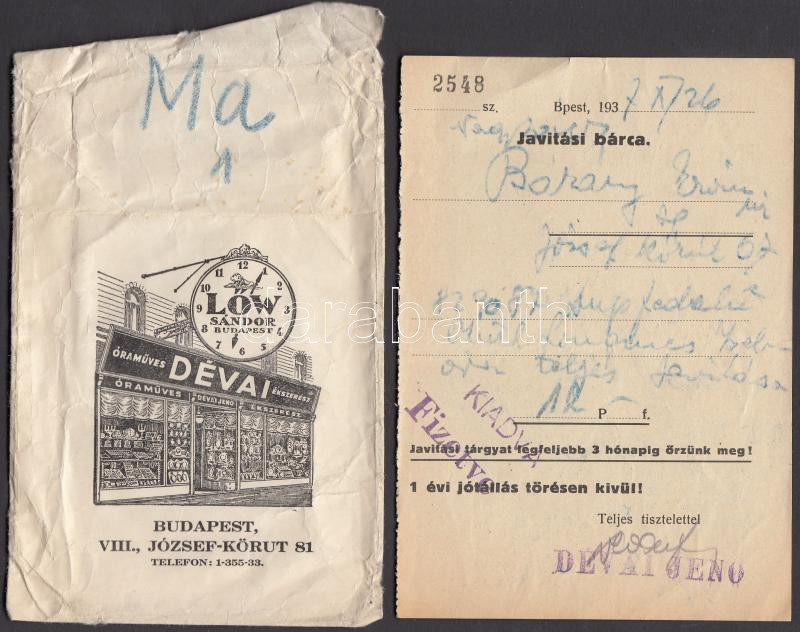 Ma
1
12
11
1
10
2
LÖW
9
3
SÁNDOR
BUDAPEST
8
4
7
5
6
ÓRAMŰVES DÉVAI ÉKSZERÉSZ
ÓRAMŰVES DÉVAI JENŐ ÉKSZERÉSZ
BUDAPEST,
VIII., JÓZSEF-KÖRUT 81
TELEFON: 1-355-33.
2548
sz. Bpest, 1937 XI/26
Javitási bárca.
Bárány Ervin
József Körút
teljes
12 — P f.
KIADVA
Fizetve
Javitási tárgyat legfeljebb 3 hónapig őrzünk meg!
1 évi jótállás törésen kivül!
Teljes tisztelettel
DÉVAI JENŐ
darabanth